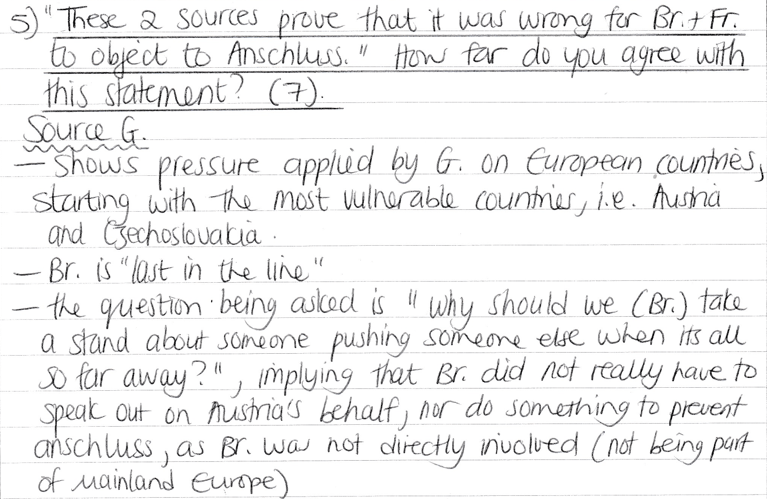 5) "These 2 sources prove that it was wrong for Br. + Fr.
to object to Anschluss." How far do you agree with
this statement? (7).
Source G.
– Shows pressure applied by G. on European countries,
starting with the most vulnerable countries, i.e. Austria
and Czechoslovakia.
– Br. is "last in the line"
– the question being asked is "why should we (Br.) take
a stand about someone pushing someone else when its all
so far away?", implying that Br. did not really have to
speak out on Austria's behalf, nor do something to prevent
anschluss, as Br. was not directly involved (not being part
of mainland Europe)